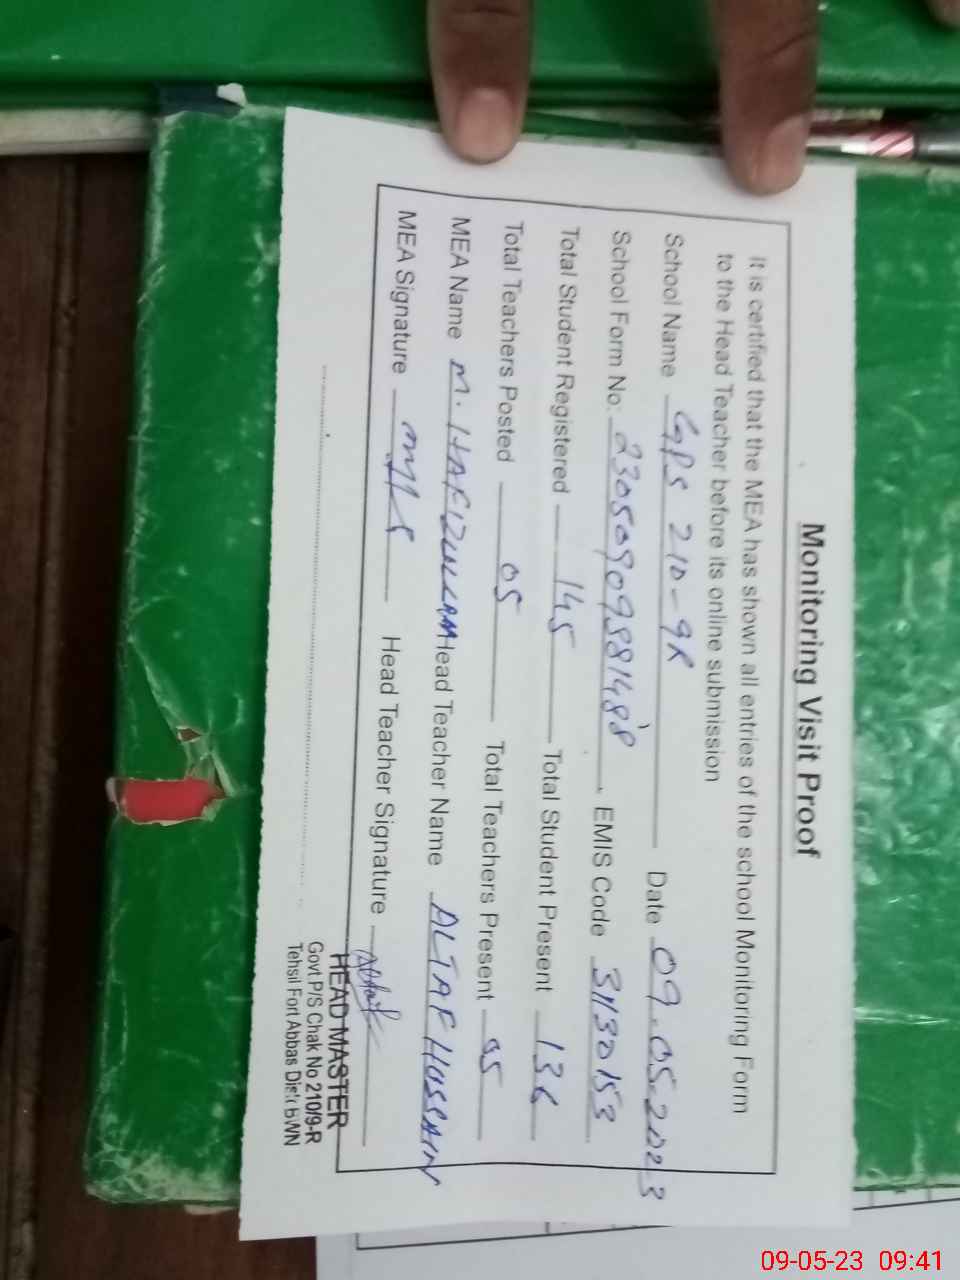 Monitoring Visit Proof
It is certified that the MEA has shown all entries of the school Monitoring Form
to the Head Teacher before its online submission
School Name GPS 210-9R Date 09.05.2023
School Form No: 23050909881488 EMIS Code 31130153
Total Student Registered 145 Total Student Present 136
Total Teachers Posted 05 Total Teachers Present 05
MEA Name M. HAFIZULLAH Head Teacher Name ALTAF HUSSAIN
MEA Signature Head Teacher Signature Altaf
HEAD MASTER
Govt.P/S Chak No 210/9-R
Tehsil Fort Abbas Distt BWN
09-05-23 09:41